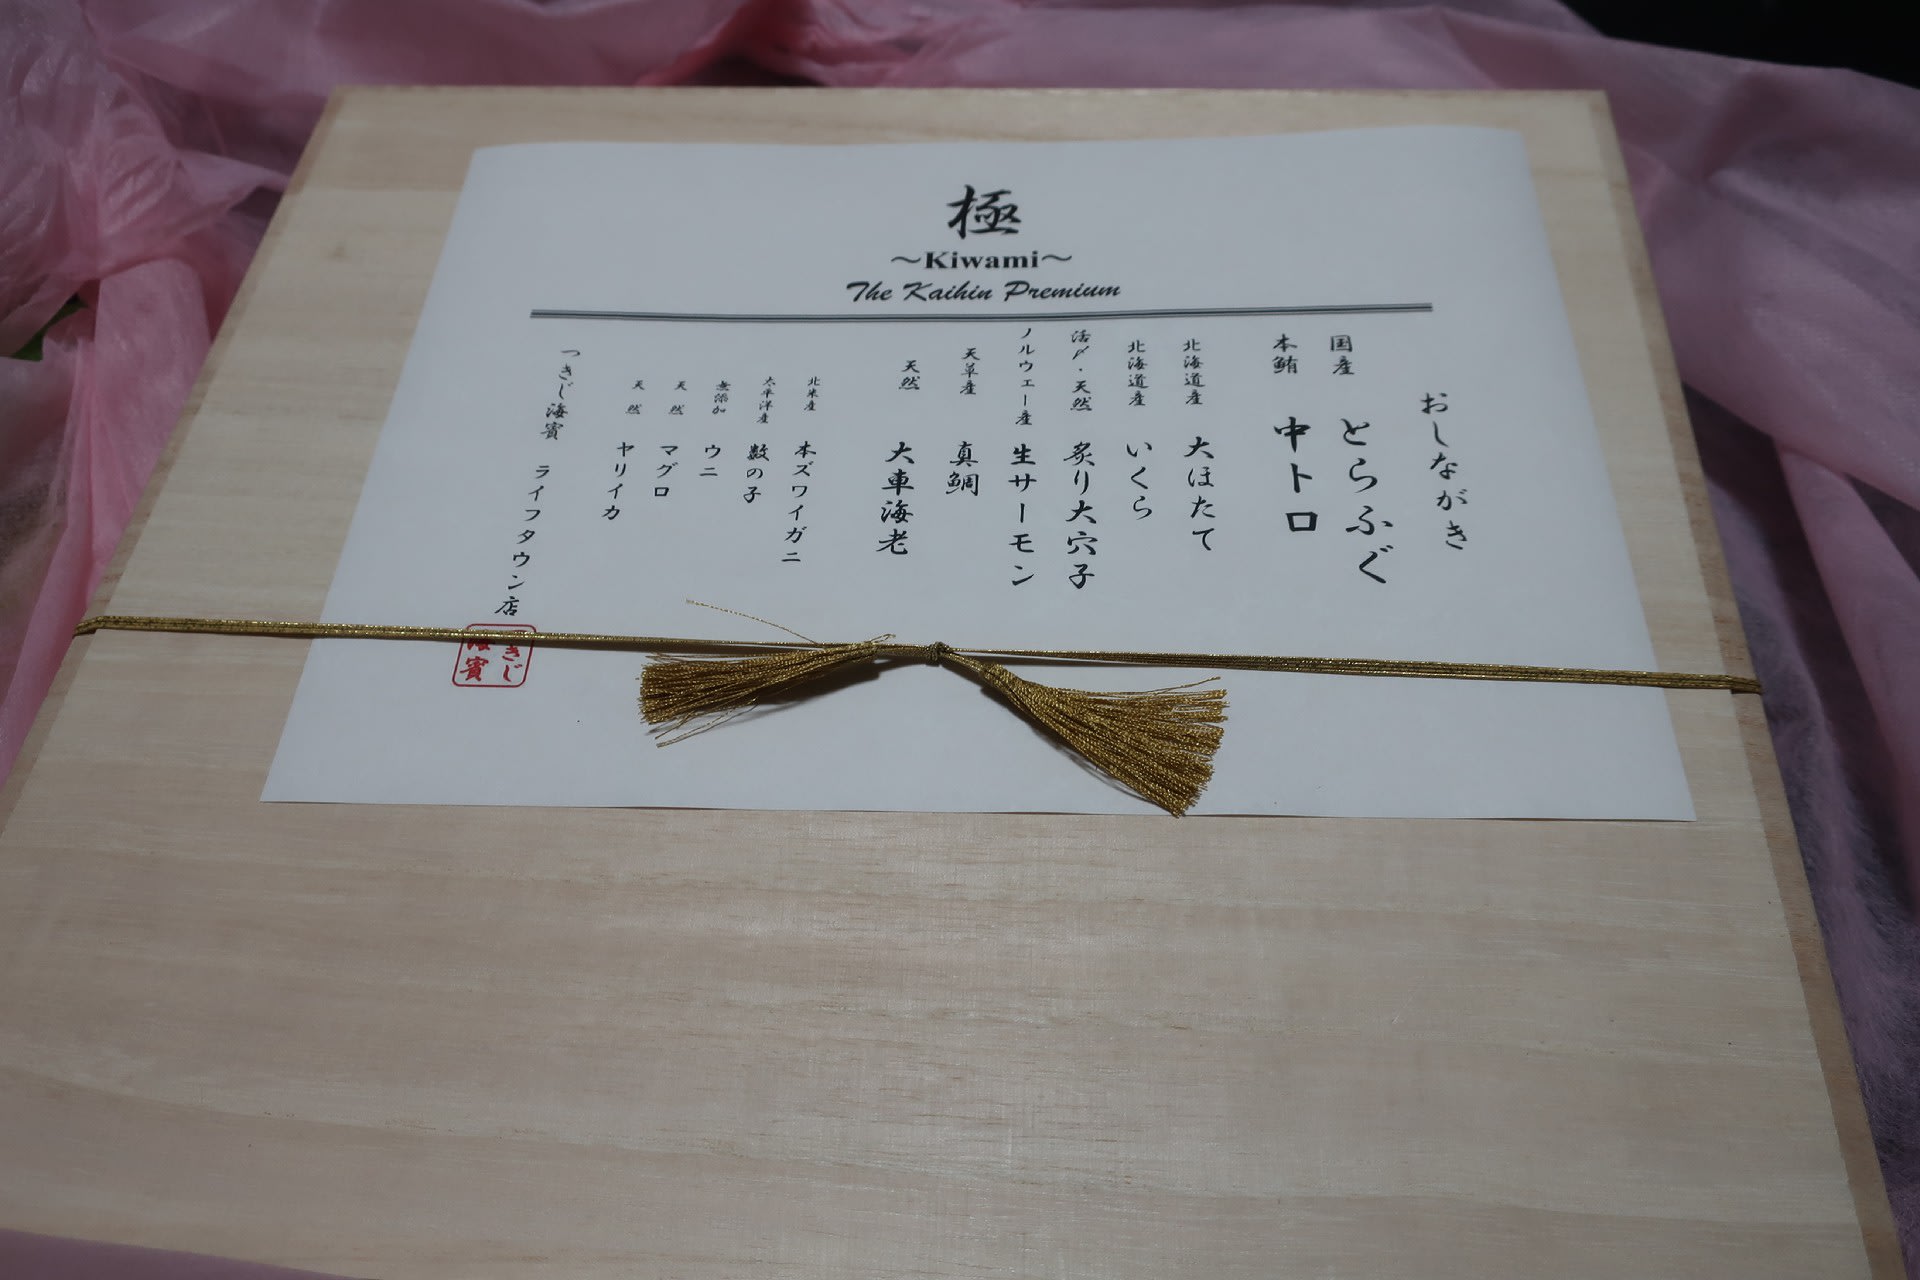 極
～Kiwami～
The Kaihin Premium
おしながき
国産 とらふぐ
本鮪 中トロ
北海道産 大ほたて
北海道産 いくら
活〆・天然 炙り大穴子
ノルウェー産 生サーモン
天草産 真鯛
天然 大車海老
北米産 本ズワイガニ
太平洋産 数の子
無添加 ウニ
天然 マグロ
天然 ヤリイカ
つきじ海賓 ライフタウン店
つきじ
海賓